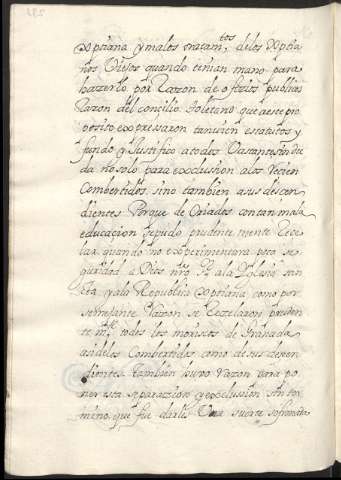 xptiana y malos tratam.tos de los xptia
nos Viejos quando tenian mano para
hazerlo por Razon de offizios publicos
Razon del concilio toletano que a este pro
posito expresaron tanvien estatutos y
fundo y Justifico a todos Vastante sin du
da no solo para exclussion a los Recien
Combertidos sino tambien a sus descen
dientes Porque de Criados con tan mala
educacion se pudo prudente mente Rece
lar quando no experimentara poco se
guridad a Dios nro S.r a la Yglesia san
ta y a la Republica xptiana como por
semejante Razon se Rezelaron pruden
te m.te todos los moriscos de Granada
asi de los Combertidos como de sus decen
dientes tambien huvo Razon para po
ner esta separazion y exclussion sin ter
mino que fue darles Una suerte